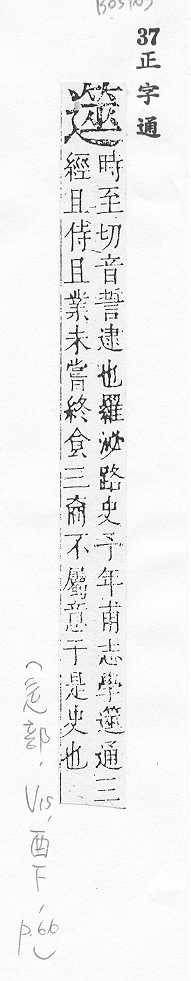 37 正字通
遾
時至切音誓逮也羅泌路史予年甫志學遾通三
經且侍且業未嘗終食三商不屬意于是史也
(辵部, V15, 酉下, p.66)